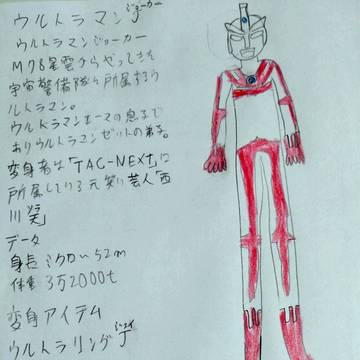 ウルトラマンジョーカー
ウルトラマンジョーカー
M78星雲からやってきた
宇宙警備隊に所属するウ
ルトラマン。
ウルトラマンエースの息子で
ありウルトラマンゼットの弟子。
変身者は「TAC-NEXT」に
所属している元笑い芸人「西
川
データ
身長 ミクロ〜52m
体重 3万2000t
変身アイテム
ウルトラリングJ